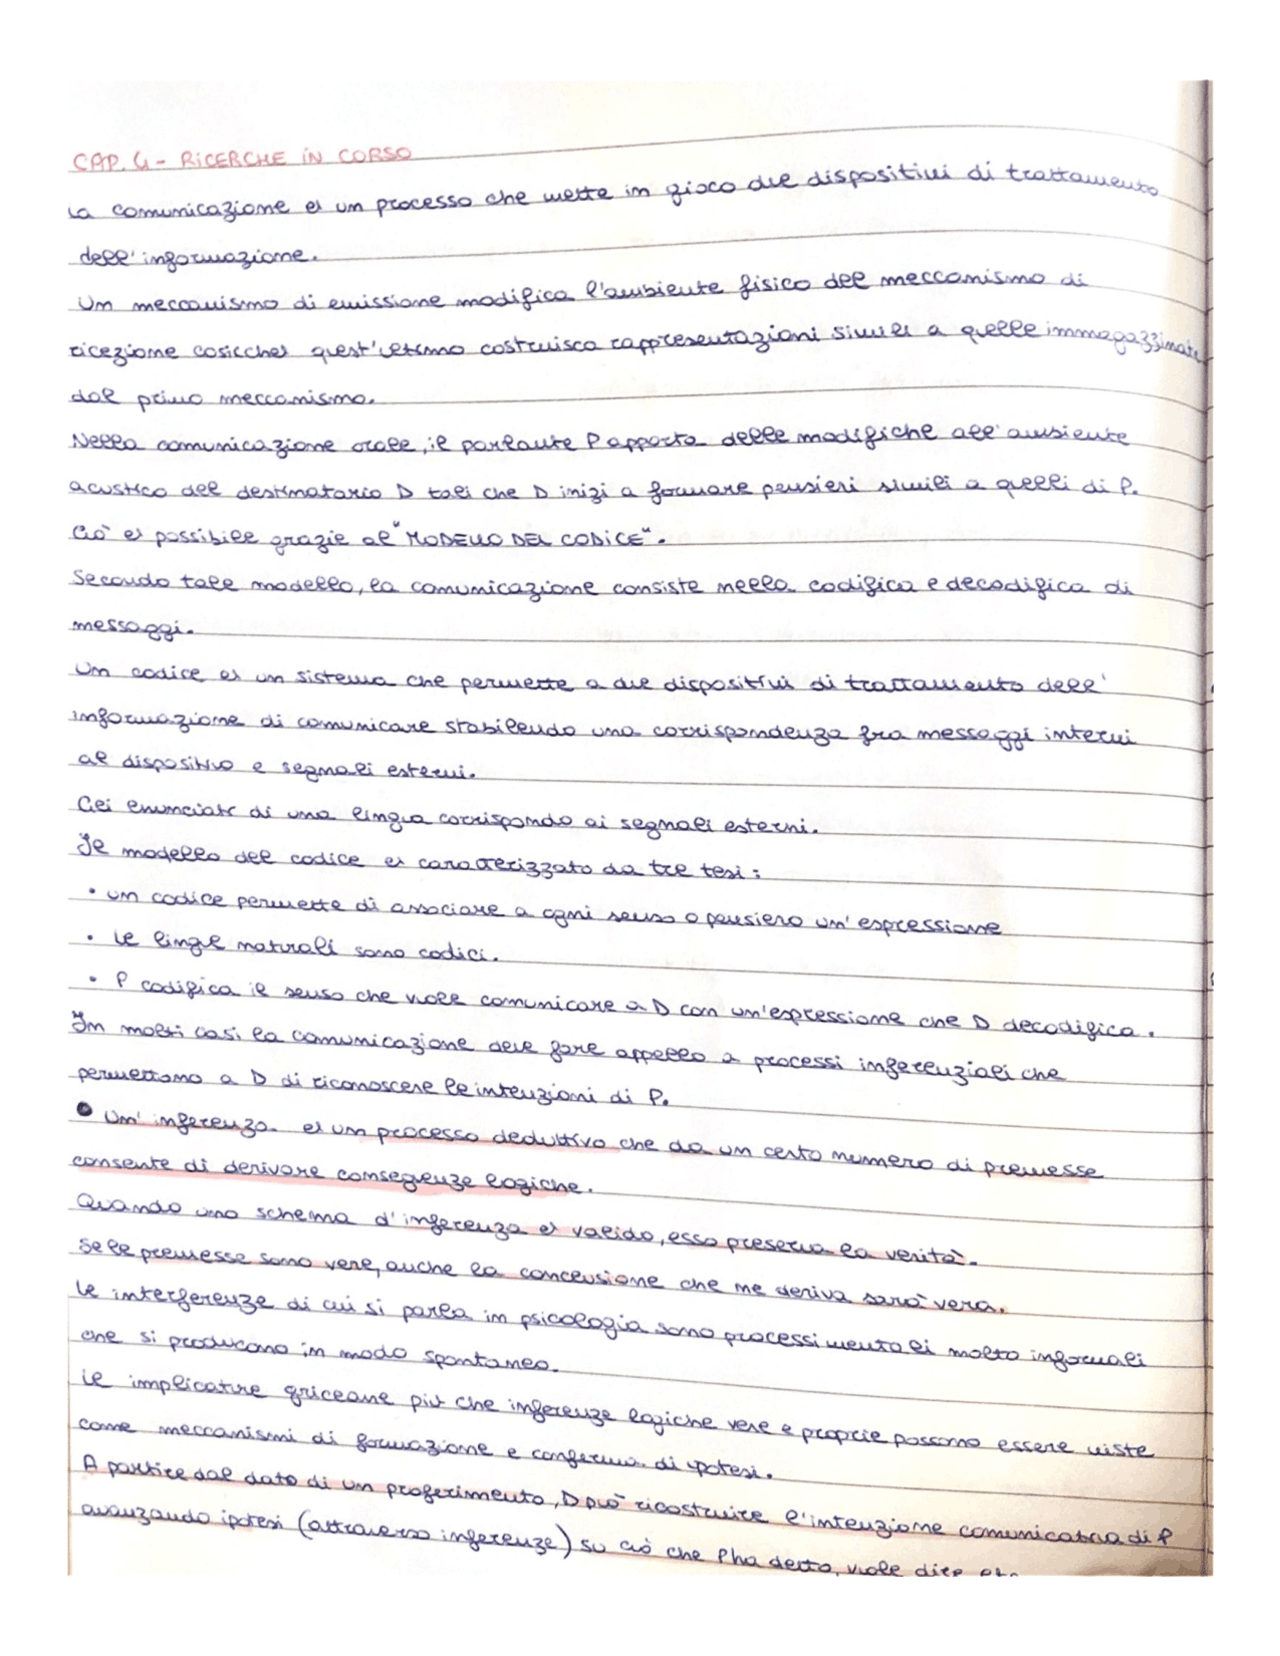 CAP. 4 - RICERCHE IN CORSO
La comunicazione è un processo che mette in gioco due dispositivi di trattamento
dell'informazione.
Un meccanismo di emissione modifica l'ambiente fisico del meccanismo di
ricezione cosicché quest'ultimo costruisca rappresentazioni simili a quelle immagazzinate
dal primo meccanismo.
Nella comunicazione orale, il parlante P apporta delle modifiche all'ambiente
acustico del destinatario D tali che D inizi a formare pensieri simili a quelli di P.
Ciò è possibile grazie al "MODELLO DEL CODICE".
Secondo tale modello, la comunicazione consiste nella codifica e decodifica di
messaggi.
Un codice è un sistema che permette a due dispositivi di trattamento dell'
informazione di comunicare stabilendo una corrispondenza fra messaggi interni
al dispositivo e segnali esterni.
Gli enunciati di una lingua corrispondo ai segnali esterni.
Il modello del codice è caratterizzato da tre tesi:
• un codice permette di associare a ogni senso o pensiero un'espressione
• Le lingue naturali sono codici.
• P codifica il senso che vuole comunicare a D con un'espressione che D decodifica.
In molti casi la comunicazione deve fare appello a processi inferenziali che
permettono a D di riconoscere le intenzioni di P.
● Un'inferenza è un processo deduttivo che da un certo numero di premesse
consente di derivare conseguenze logiche.
Quando uno schema d'inferenza è valido, esso preserva la verità.
Se le premesse sono vere, anche la conclusione che ne deriva sarà vera.
Le interferenze di cui si parla in psicologia sono processi mentali molto informali
che si producono in modo spontaneo.
Le implicature griceane più che inferenze logiche vere e proprie possono essere viste
come meccanismi di formazione e conferma di ipotesi.
A partire dal dato di un proferimento, D può ricostruire l'intenzione comunicativa di P
avanzando ipotesi (attraverso inferenze) su ciò che P ha detto, vuole dire etc